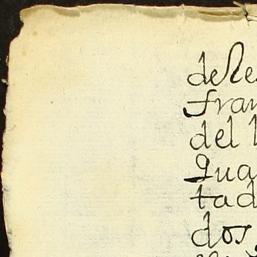 deRe
fran
del l
Qua
tad
dos